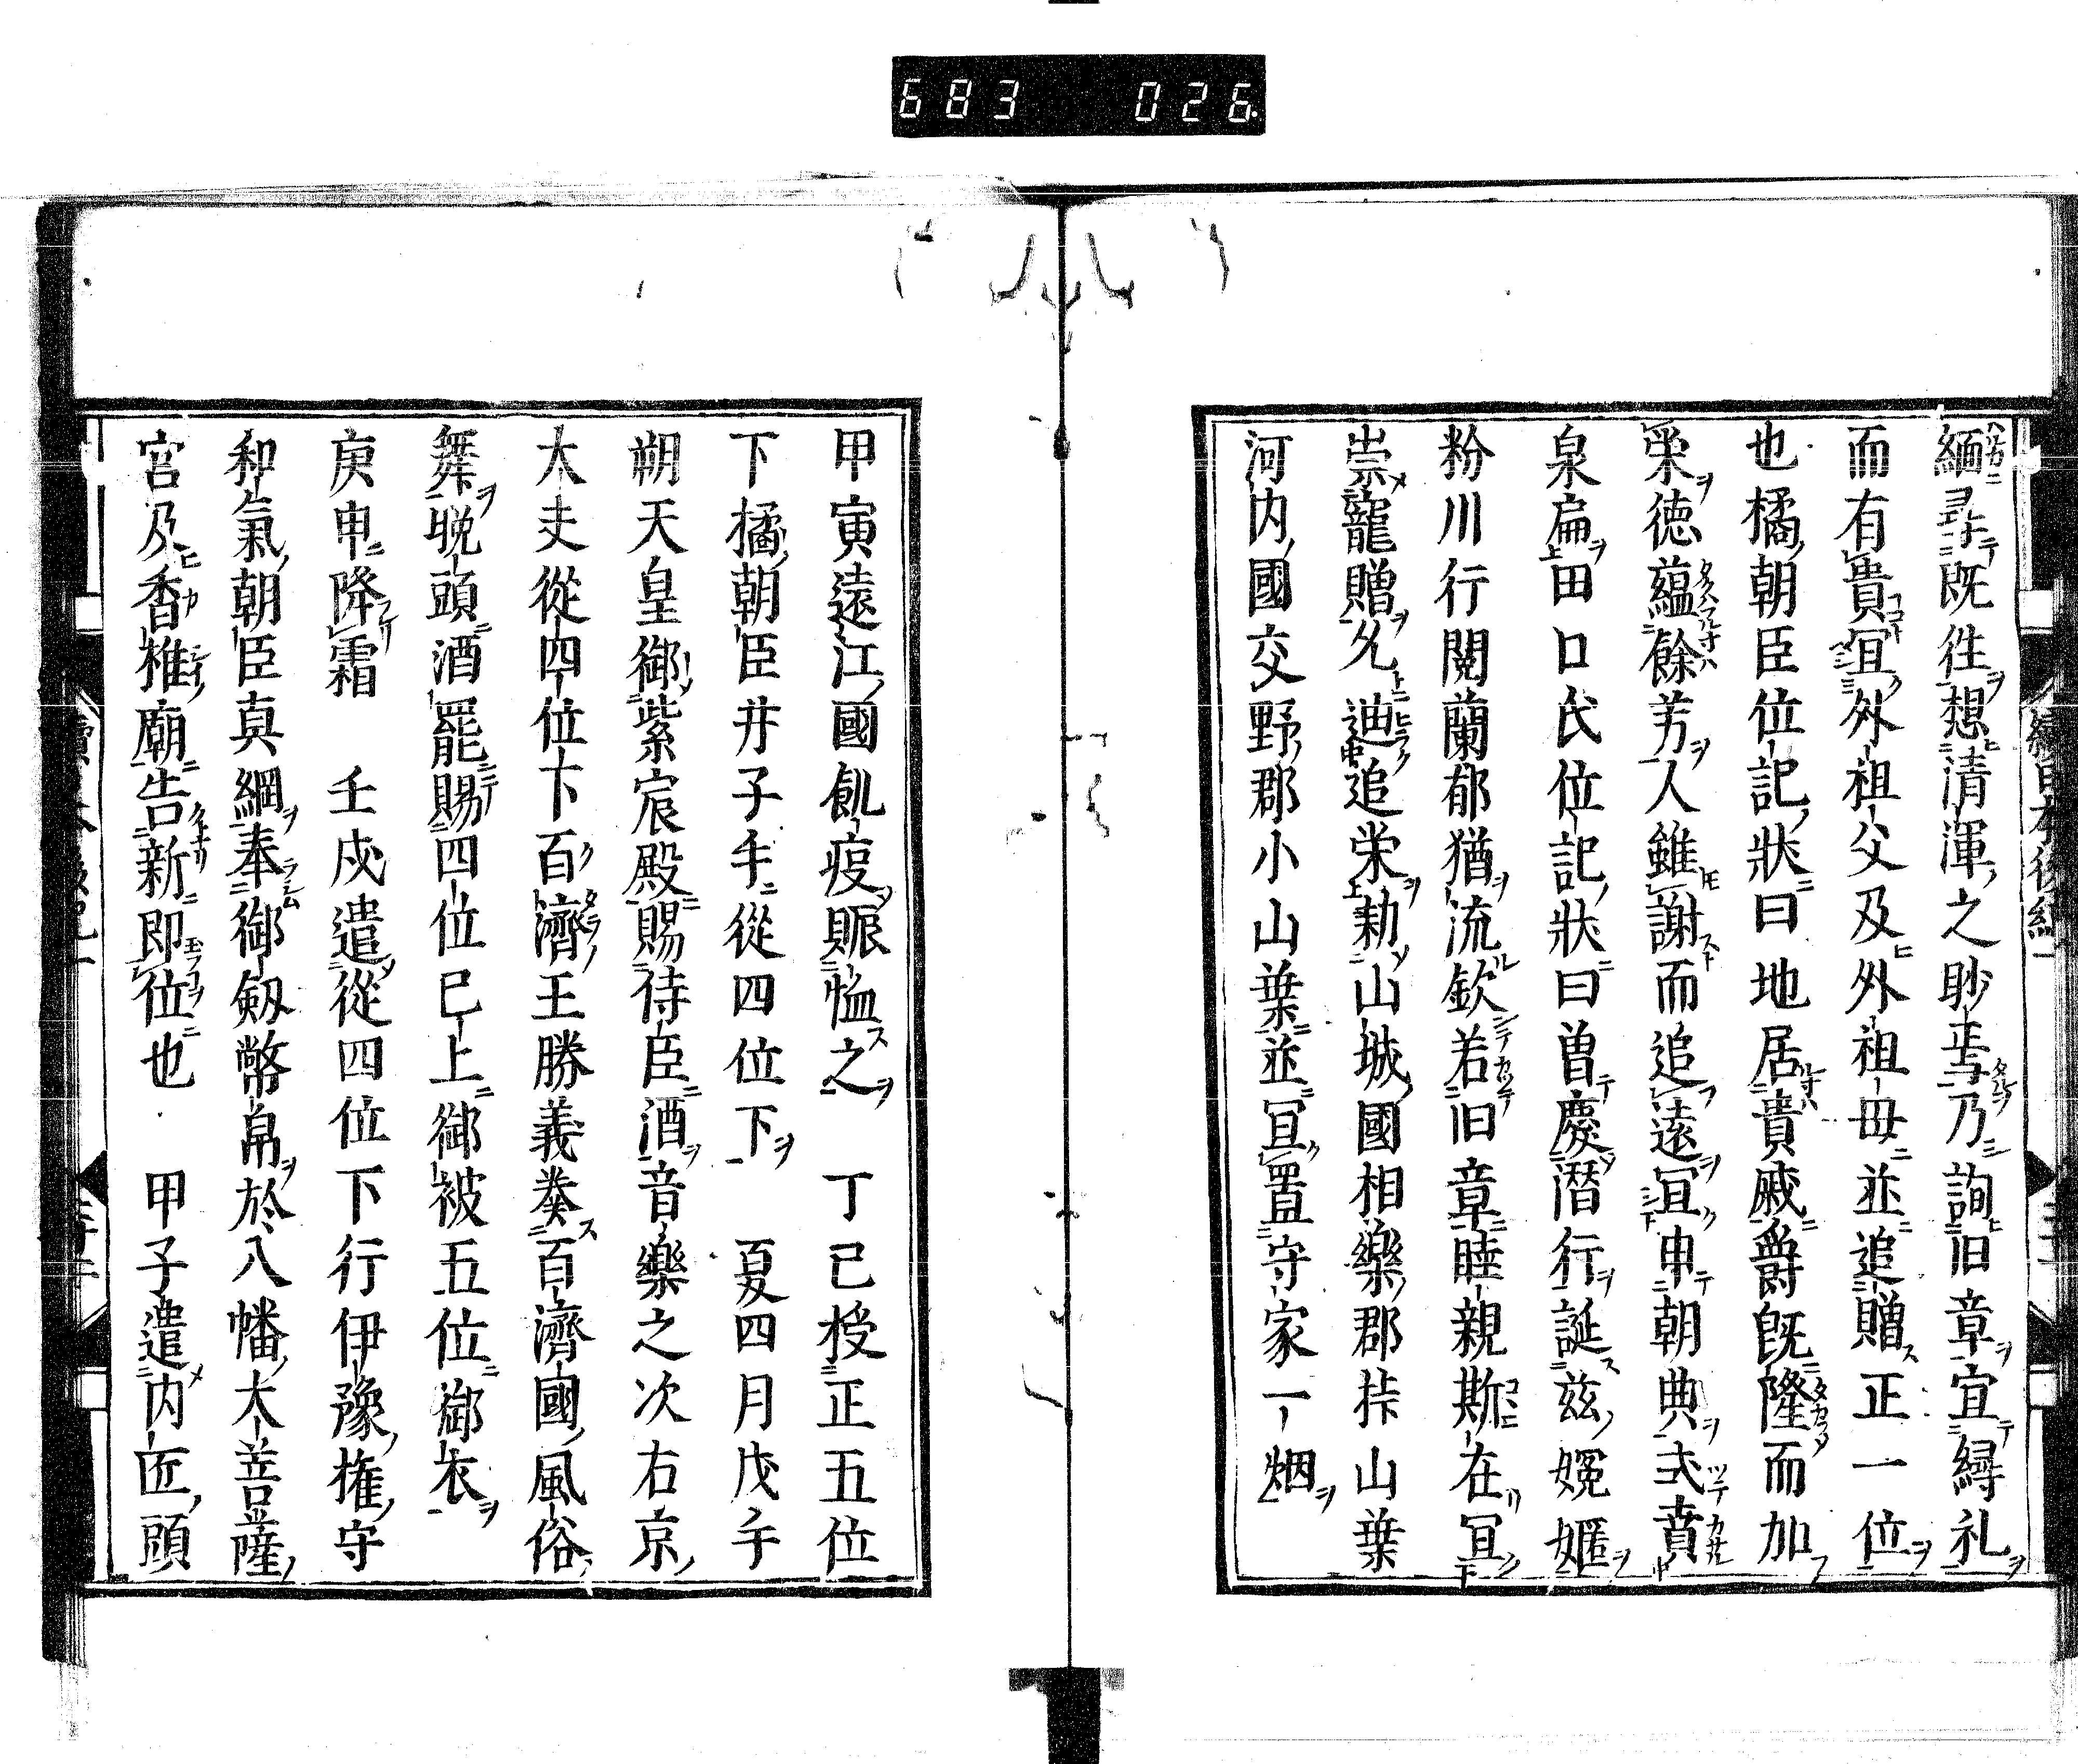 683 026
緬尋既往想清渾之眇焉乃詢旧章宜縟礼
而有貴冝外祖父及外祖母並追贈正一位
也橘朝臣位記狀曰地居貴戚爵既隆而加
栄徳蘊餘芳人雖謝而追遠冝申朝典式賁
泉扃田口氏位記狀曰曽慶潛行誕茲婗嫗
粉川行閱蘭郁猶流欽若旧章睦親斯在冝
崇寵贈允迪追栄勅山城國相樂郡挊山葉
河内國交野郡小山葉並冝置守家一烟
甲寅遠江國飢疫賑恤之　丁巳授正五位
下橘朝臣井子手從四位下　夏四月戊午
朔天皇御紫宸殿賜侍臣酒音樂之次右京
大夫從四位下百濟王勝義奏百濟國風俗
舞晚頭酒罷賜四位已上御被五位御衣
庚申降霜　壬戌遣從四位下行伊豫權守
和氣朝臣真綱奉御劔幣帛於八幡大菩薩
宮及香椎廟告新即位也　甲子遣内匠頭